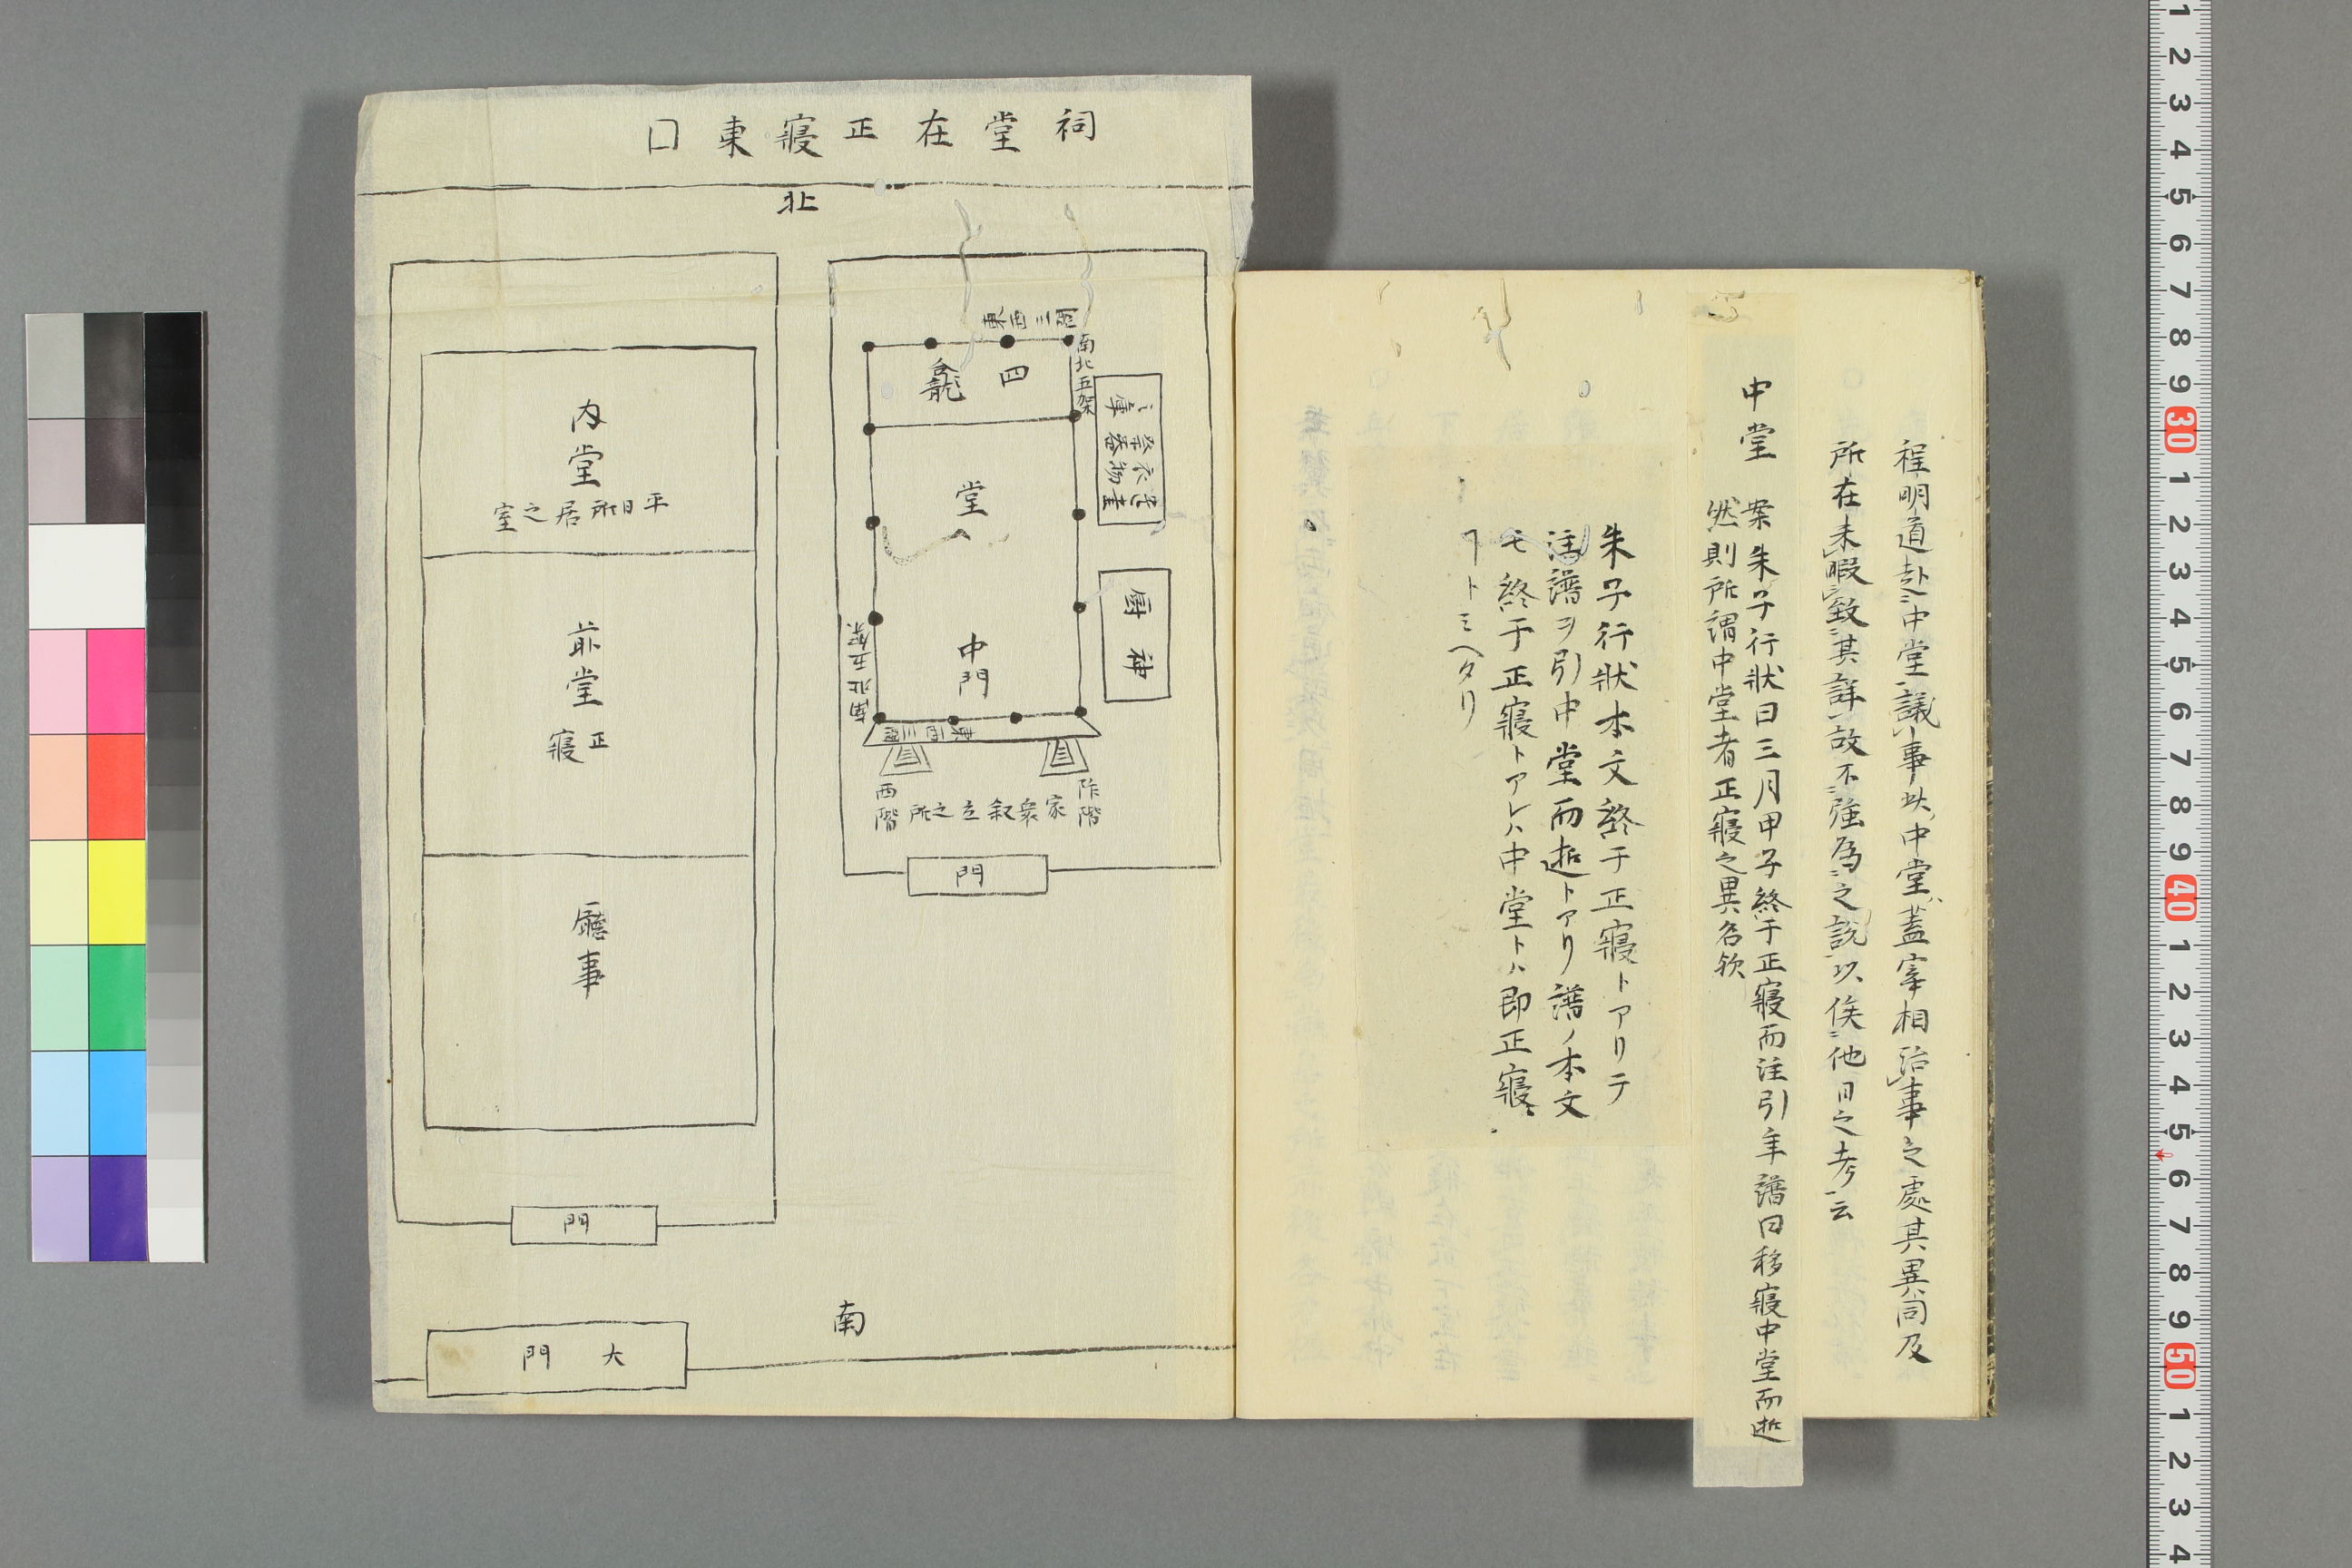 程明道赴中堂議事以中堂蓋宰相治事之處其異同及
所在未暇致其詳故不強為之説以俟他日之考云
中堂
案朱子行状曰三月甲子終于正寢而注引年譜曰移寢中堂而逝
然則所謂中堂者正寢之異名欤
朱子行状本文終于正寢トアリテ
注譜ヲ引中堂而逝トアリ譜ノ本文
モ終于正寢トアレハ中堂トハ即正寢
ヿトミヘタリ
祠堂在正寢東
北
東西三間
南北五架
四龕
堂
中門
南北五架
東西三間
遺
衣
祭器物
庫
神
厨
阼階
西階
家衆叙立之所
門
内堂
平日所居之室
前堂
正寢
廳事
門
南
大門